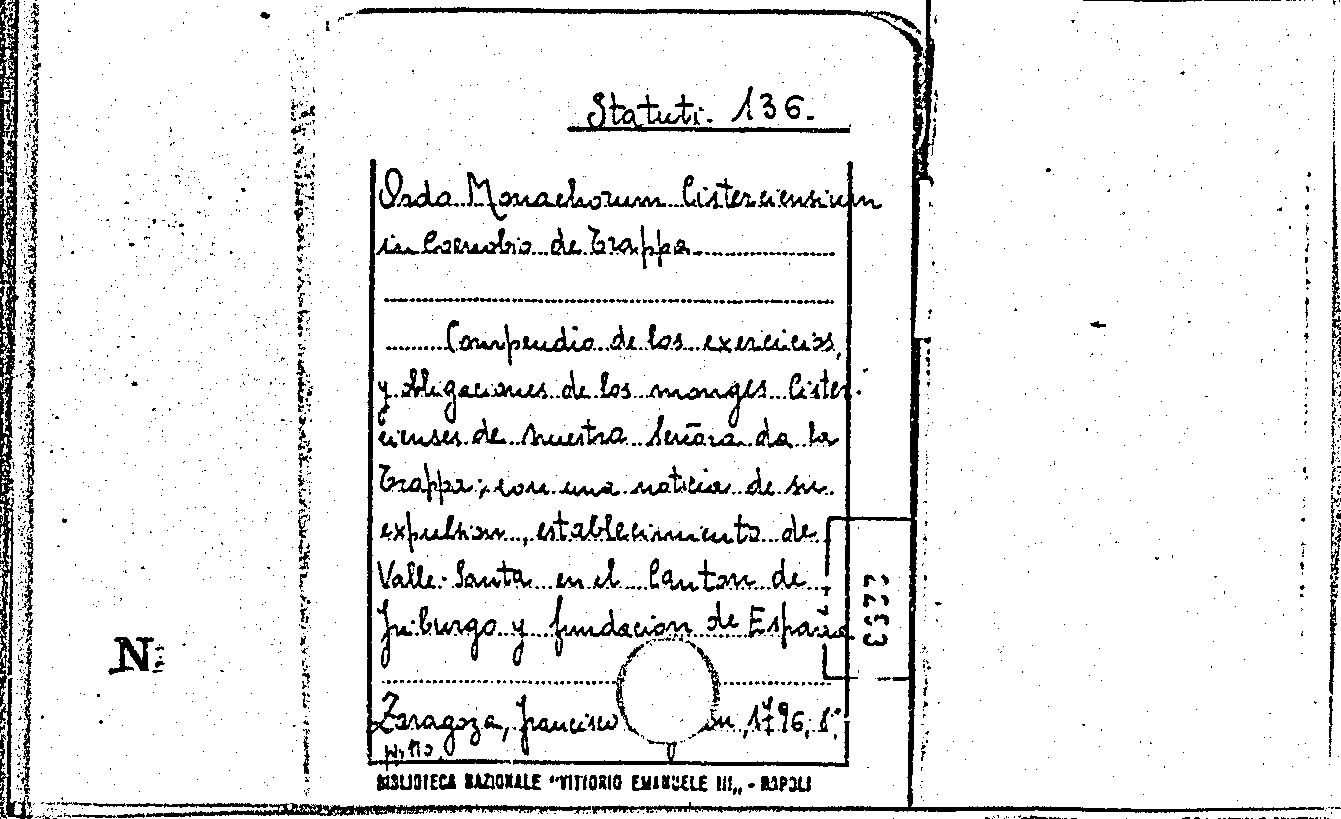 Statuti. 136.
Ordo Monachorum Cisterciensium
in Coenobio de Trappa
Compendio de los exercicios,
y obligaciones de los monges Cister-
cienses de nuestra Señora da la
Trappa; con una noticia de su
expulsion, establecimiento de
Valle-Santa en el Canton de
Friburgo y fundacion de España
Zaragoza, Francisco 1796, 8.°
BIBLIOTECA NAZIONALE "VITTORIO EMANUELE III„ - NAPOLI
N.